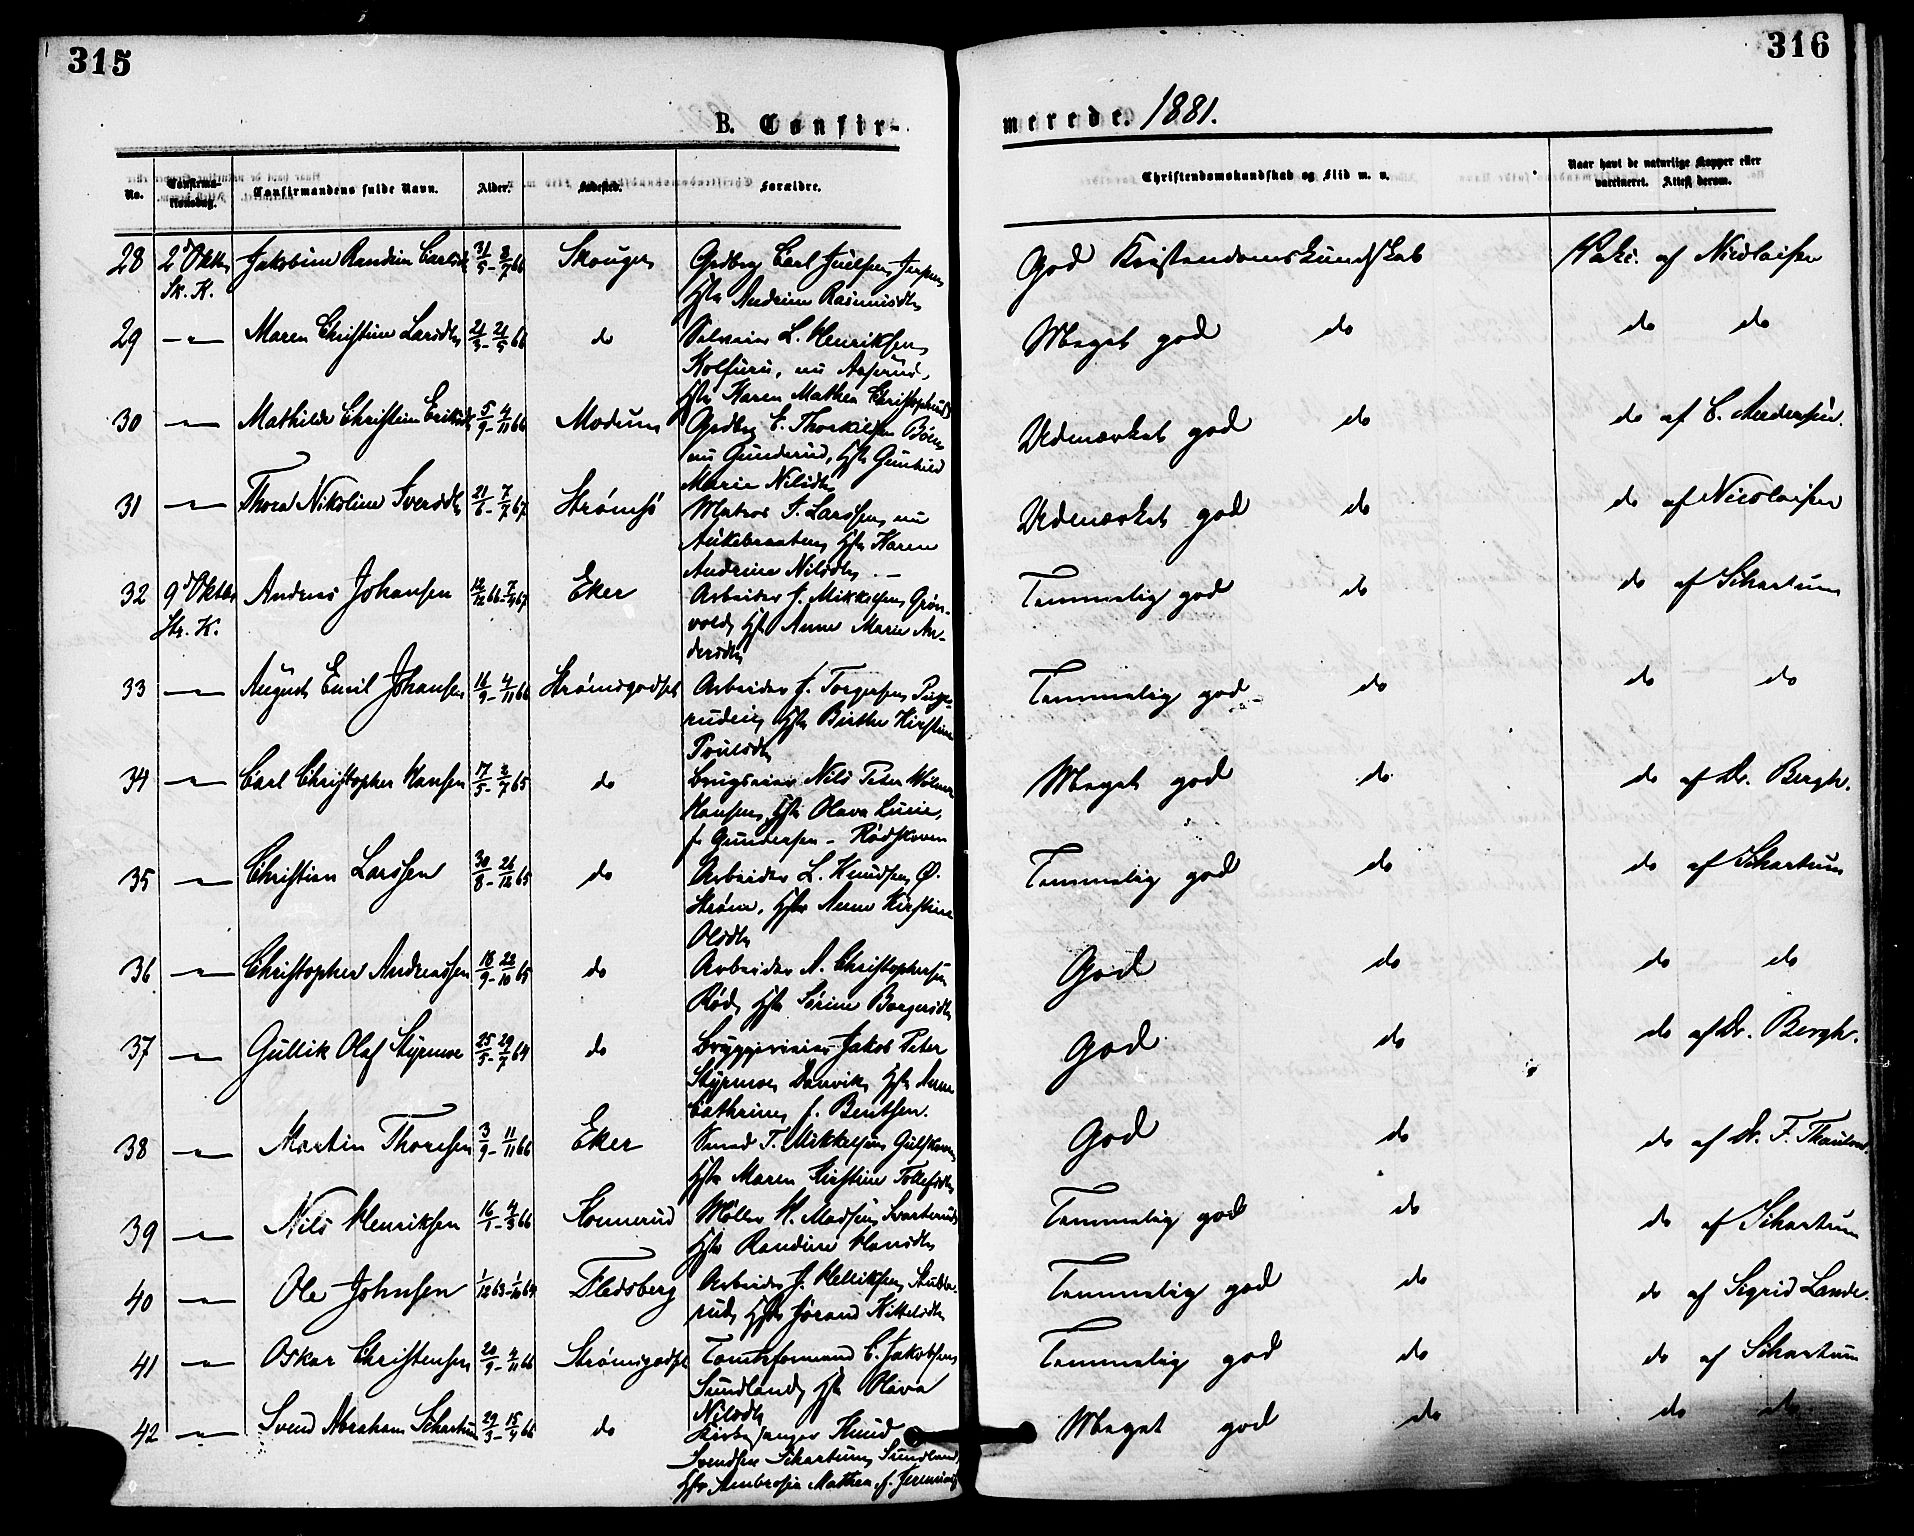 315
316
B. Confir-
merede. 1881.
No.
Confirma-
tionsdag.
Confirmandens fulde Navn.
Alder.
Fødested.
Forældre.
Christendomskundskab og Flid m. v.
Naar havt de naturlige Kopper eller
vaccineret. Attest derom.
28 2d Oktbr Jakobine Randine Carlsdtr 31/5 - 8/7 66 Skouger Grdbrg Carl Juelsen
Sk. K. Hstr Andrine Rasmusdtr
God Kristendomskundskab Vakc. af Nicolaisen
29 —"— Maren Christine Larsdtr 21/3 - 21/5 66 do Selveier L. Henriksen
Kolfuru, nu Aserud,
Hstr Karen Mathea Christophersdtr
Meget god do do do
30 —"— Mathilde Christine Eriksdtr 5/9 - 4/11 66 Modum Grdbrg E. Thorkilsen Böen
nu Gunderud, Hstr Gunhild
Marie Nilsdtr
Udmærket god do do af C. Andersen.
31 —"— Thora Nikoline Iversdtr 21/6 - 7/7 67 Strømsø Matros I. Larssen, nu
Hstr Karen
Andrine Nilsdtr. —
Udmærket god do do af Nicolaisen
32 9d Oktbr Andreas Johansen 12/12 66 - 7/4 67 Eker Arbeider J. Mikkelsen Grön-
Str. K. vold, Hstr Anne Marie An-
dersdtr
Temmelig god do do af Schartum
33 —"— August Emil Johansen 16/9 - 4/11 66 Strømsgodset Arbeider J. Torgersen
Hstr Birthe Kirstine
Poulsdtr
Temmelig god do do do
34 —"— Carl Christopher Hansen 17/5 - 2/7 65 do Brugseier Nils Peter
Hansen, Hstr Olava Lucie,
f. Gundersen - Rødskoven
Meget god do do af Dr. Bergh.
35 —"— Christian Larssen 30/8 - 26/12 65 do Arbeider L. Knudsen Ø.
Strøm, Hstr Anne Kirstine
Olsdtr
Temmelig god do do af Schartum
36 —"— Christopher Andreassen 18/9 - 22/10 65 do Arbeider A. Christophersen
Rød, Hstr Sörine Borgersdtr
God do do do
37 —"— Gullik Olaf Styrmoe 25/5 - 29/7 64 do Bryggerieier Jakob Peter
Styrmoe, Danvik, Hstr Anne
Cathrine, f. Bentsen.
God do do af Dr. Bergh.
38 —"— Martin Thoresen 3/9 - 11/11 66 Eker Smed T. Mikkelsen Gulskoven
Hstr Maren Kirstine Tollefsdtr
God do do af Dr. F. Thaulow.
39 —"— Nils Henriksen 16/1 - 4/3 66 Konnerud Möller H. Madsen Svarterud
Hstr Randine Hansdtr
Temmelig god do do af Schartum
40 —"— Ole Johnsen 1/12 63 - 1/10 64 Flesberg Arbeider J. Helliksen Stubbe-
rud, Hstr Jörand Kittelsdtr
Temmelig god do do af Sigrid Lande.
41 —"— Oskar Christensen 20/9 - 4/11 66 Strømsgodset Tomteformand C. Jakobsen
Sundland, Hstr Olava
Nilsdtr
Temmelig god do do af Schartum
42 —"— Svend Abraham Schartum 29/3 - 15/4 66 do Kirkesanger Knud
Svendsen Schartum, Sundland,
Hstr Ambrosia Mathea f. Jeremiassen
Meget god do do do